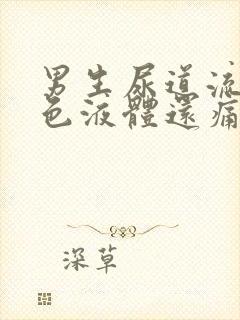 男生尿道流
色液體還痛
深草